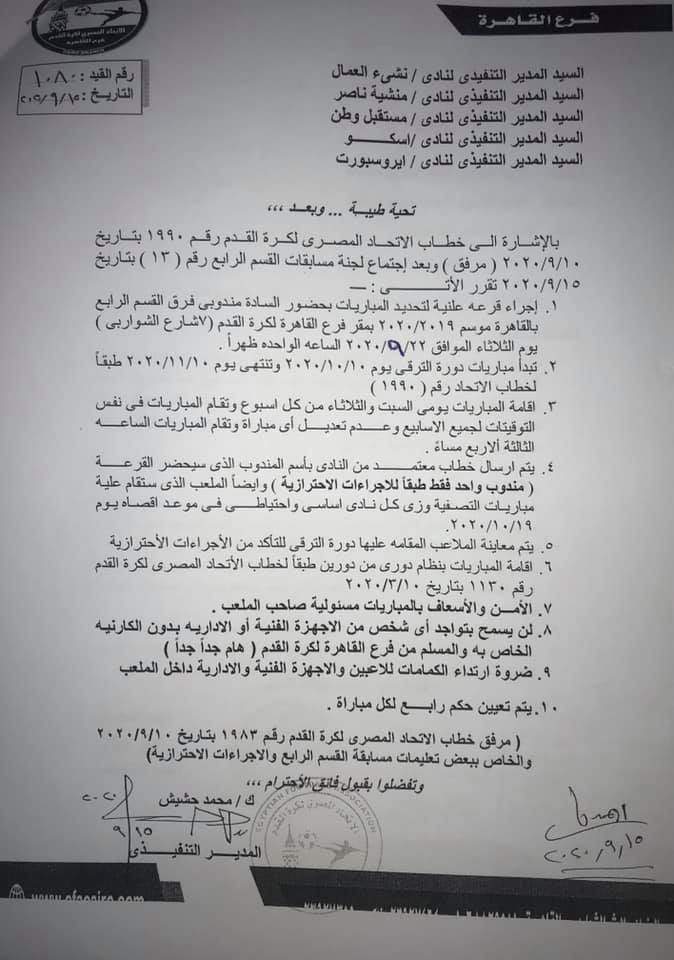 فرع القاهرة
الاتحاد المصرى لكرة القدم
فرع القاهرة
رقم القيد : ١٠٨٠
التاريخ : ٢٠٢٠/٩/١٥
السيد المدير التنفيدى لنادى / نشىء العمال
السيد المدير التنفيذى لنادى / منشية ناصر
السيد المدير التنفيذى لنادى / مستقبل وطن
السيد المدير التنفيذى لنادى /اسكو
السيد المدير التنفيذى لنادى / ايروسبورت
تحية طيبة ... وبعد ،،،
بالإشارة الى خطاب الاتحاد المصرى لكرة القدم رقم ١٩٩٠ بتاريخ
٢٠٢٠/٩/١٠ ( مرفق ) وبعد إجتماع لجنة مسابقات القسم الرابع رقم ( ١٣ ) بتاريخ
٢٠٢٠/٩/١٥ تقرر الأتى : ــ
١. إجراء قرعه علنية لتحديد المباريات بحضور السادة مندوبى فرق القسم الرابع
بالقاهرة موسم ٢٠٢٠/٢٠١٩ بمقر فرع القاهرة لكرة القدم (٧شارع الشواربى )
يوم الثلاثاء الموافق ٢٠٢٠/٩/٢٢ الساعه الواحده ظهراً .
٢. تبدأ مباريات دورة الترقى يوم ٢٠٢٠/١٠/١٠ وتنتهى يوم ٢٠٢٠/١١/١٠ طبقاً
لخطاب الاتحاد رقم ( ١٩٩٠ )
٣. اقامة المباريات يومى السبت والثلاثاء من كل اسبوع وتقام المباريات فى نفس
التوقيتات لجميع الاسابيع وعدم تعديل أى مباراة وتقام المباريات الساعه
الثالثة ألاربع مساءً .
٤. يتم ارسال خطاب معتمد من النادى بأسم المندوب الذى سيحضر القرعة
( مندوب واحد فقط طبقاً للاجراءات الاحترازية ) وايضاً الملعب الذى ستقام علية
مباريات التصفية وزى كل نادى اساسى واحتياطى فى موعد اقصاه يوم
٢٠٢٠/١٠/١٩.
٥. يتم معاينة الملاعب المقامه عليها دورة الترقى للتأكد من الأجراءات الأحترازية
٦. اقامة المباريات بنظام دورى من دورين طبقاً لخطاب الأتحاد المصرى لكرة القدم
رقم ١١٣٠ بتاريخ ٢٠٢٠/٣/١٠
٧. الأمن والأسعاف بالمباريات مسئولية صاحب الملعب .
٨. لن يسمح بتواجد أى شخص من الاجهزة الفنية أو الاداريه بدون الكارنيه
الخاص به والمسلم من فرع القاهرة لكرة القدم ( هام جداً جداً )
٩. ضروة ارتداء الكمامات للاعبين والاجهزة الفنية والادارية داخل الملعب
١٠. يتم تعيين حكم رابع لكل مباراة .
( مرفق خطاب الاتحاد المصرى لكرة القدم رقم ١٩٨٣ بتاريخ ٢٠٢٠/٩/١٠
والخاص ببعض تعليمات مسابقة القسم الرابع والاجراءات الاحترازية)
وتفضلوا بقبول فائق الأحترام ،،،
ك / محمد حشيش
المدير التنفيذى
٢٠٢٠
٩/١٥
٢٠٢٠/٩/١٥